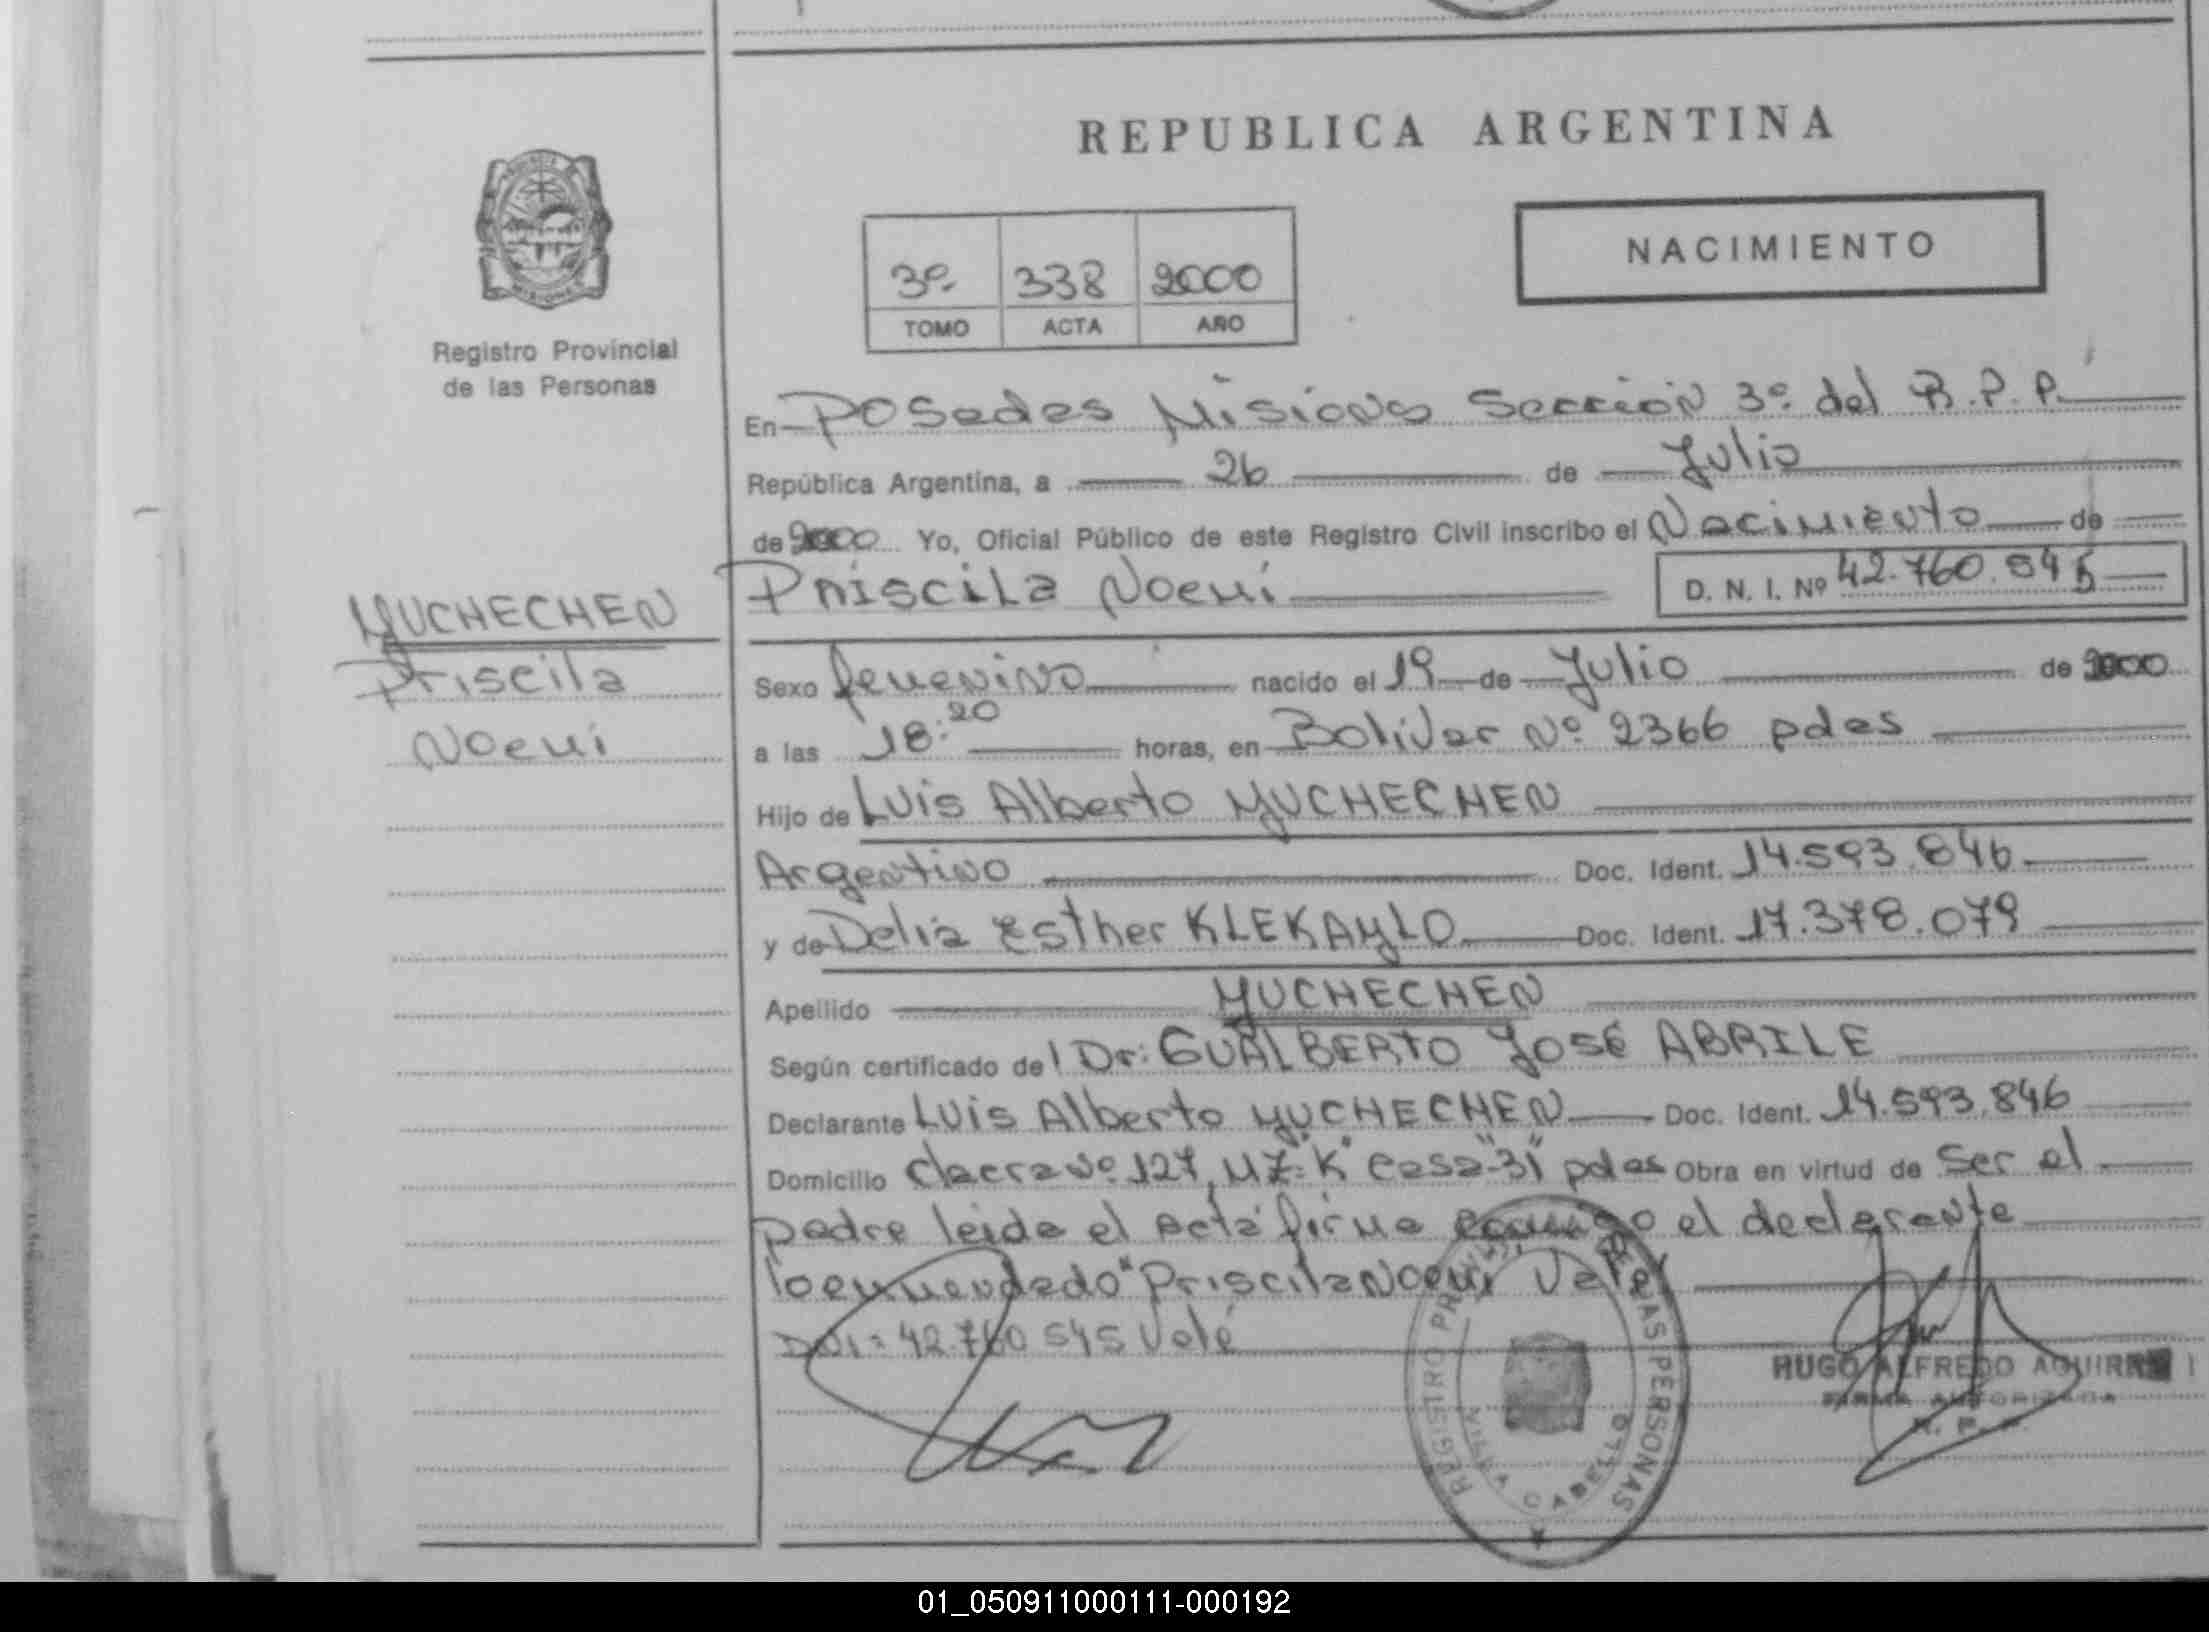 REPUBLICA ARGENTINA
NACIMIENTO
3º 338 2000
TOMO ACTA AÑO
Registro Provincial
de las Personas
En Posadas Misiones Sección 3º del R.P.P.
República Argentina, a 26 de Julio
de 2000 Yo, Oficial Público de este Registro Civil inscribo el Nacimiento de
Priscila Noemi D. N. I. Nº 42.760.545
YUCHECHEN
Priscila
Noemi
Sexo femenino nacido el 19 de Julio de 2000
a las 18:20 horas, en Bolivar Nº 2366 pdas
Hijo de Luis Alberto YUCHECHEN
Argentino Doc. Ident. 14.593.846
y de Delia Esther KLEKAYLO Doc. Ident. 17.378.079
Apellido YUCHECHEN
Según certificado del Dr: GUALBERTO José ABRILE
Declarante Luis Alberto YUCHECHEN Doc. Ident. 14.593.846
Domicilio chacra Nº 127, MZ="K" Casa "31" pdas Obra en virtud de ser el
padre leida el acta firma conmigo el declarante
lo enmendado "Priscila Noemi Vale
DNI= 42.760 545 Valé
REGISTRO PERSONAS
VILLA CABELLO
HUGO ALFREDO AGUIRRE
FIRMA AUTORIZADA
R. P. P.
01_050911000111-000192